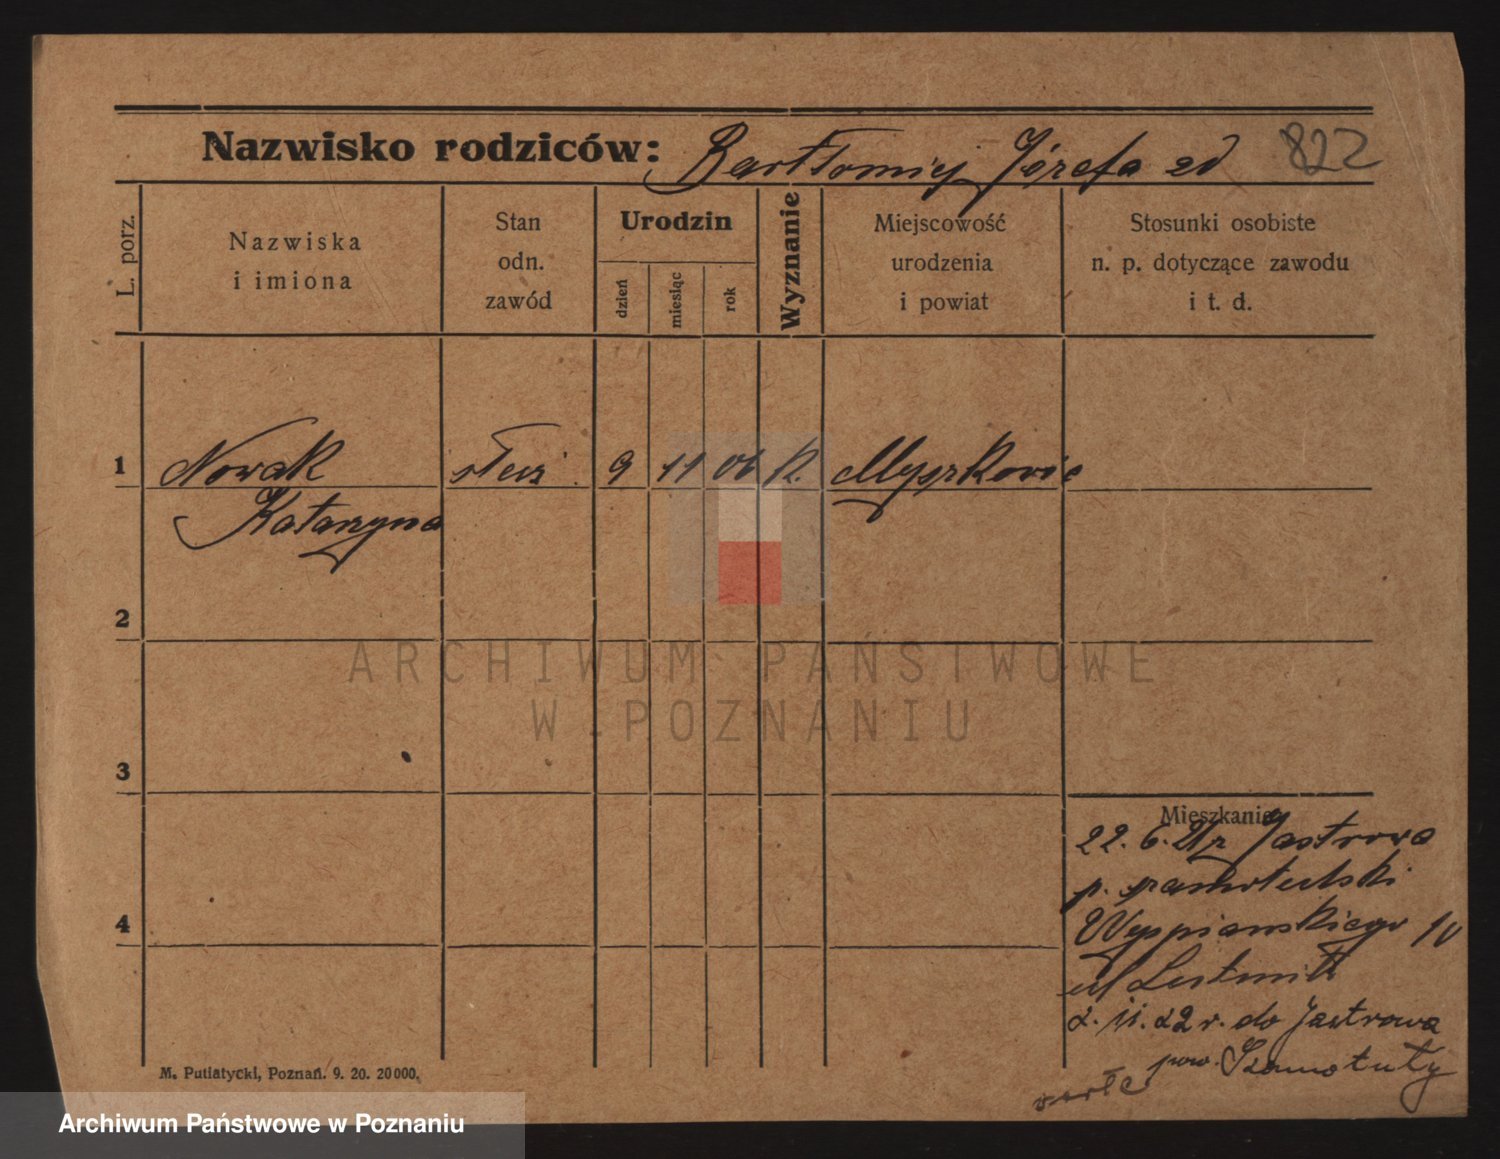 Nazwisko rodziców: Bartłomiej Józefa zd 822
L. porz.
Nazwiska
i imiona
Stan
odn.
zawód
Urodzin
dzień
miesiąc
rok
Wyznanie
Miejscowość
urodzenia
i powiat
Stosunki osobiste
n. p. dotyczące zawodu
i t. d.
1 Nowak 9 11 06 k. Myszkowie
Katarzyna
2
ARCHIWUM PAŃSTWOWE
W POZNANIU
3
Mieszkanie
22. 6. Jastrowo
p.
4
Wyspiańskiego 10
ul
2. 11. 22 r. do Jastrowa
pow. Szamotuły
M. Putiatycki, Poznań. 9. 20. 20000.
Archiwum Państwowe w Poznaniu